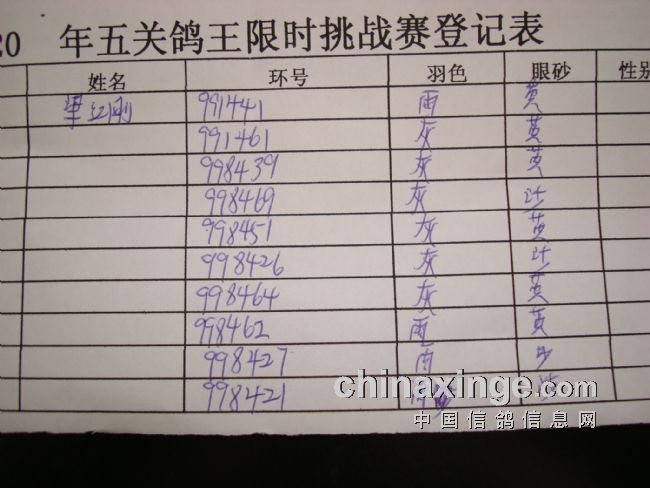 20 年五关鸽王限时挑战赛登记表
姓名 环号 羽色 眼砂 性别
红刚 991441 雨 黄
991461 灰 黄
998439 灰 黄
998469 灰 沙
998451 灰 黄
998426 灰 沙
998464 灰 黄
998462 雨 黄
998427 雨 沙
998421
chinaxinge.com
中国信鸽信息网